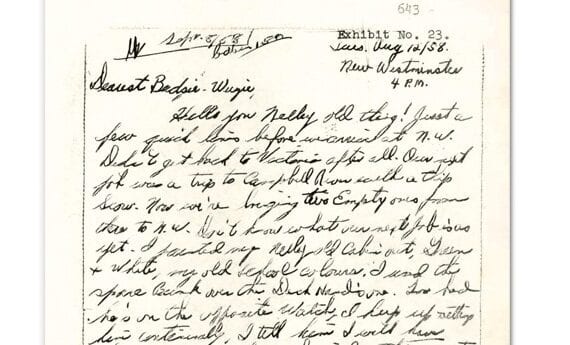 643 -
Sept. 8/58
Exhibit No. 23.
Tues. Aug 12/58.
New Westminster
4 P.M.
Dearest Bedsie - Wugie,
Hello you Nelly old thing! Just a
few quick lines before we arrive at N.W.
Didn't get back to Victoria after all. Our next
job was a trip to Campbell River with a
Scow. Now we're bringing two Empty ones from
there to N.W. Don't know what our next job is as
yet. I painted my Nelly old Cabin out, Green
& White, my old school colours. I used the
spare Bunk over the Deck Hand's one. Too bad
he's on the opposite Watch, I keep
him continually, I tell him I will have